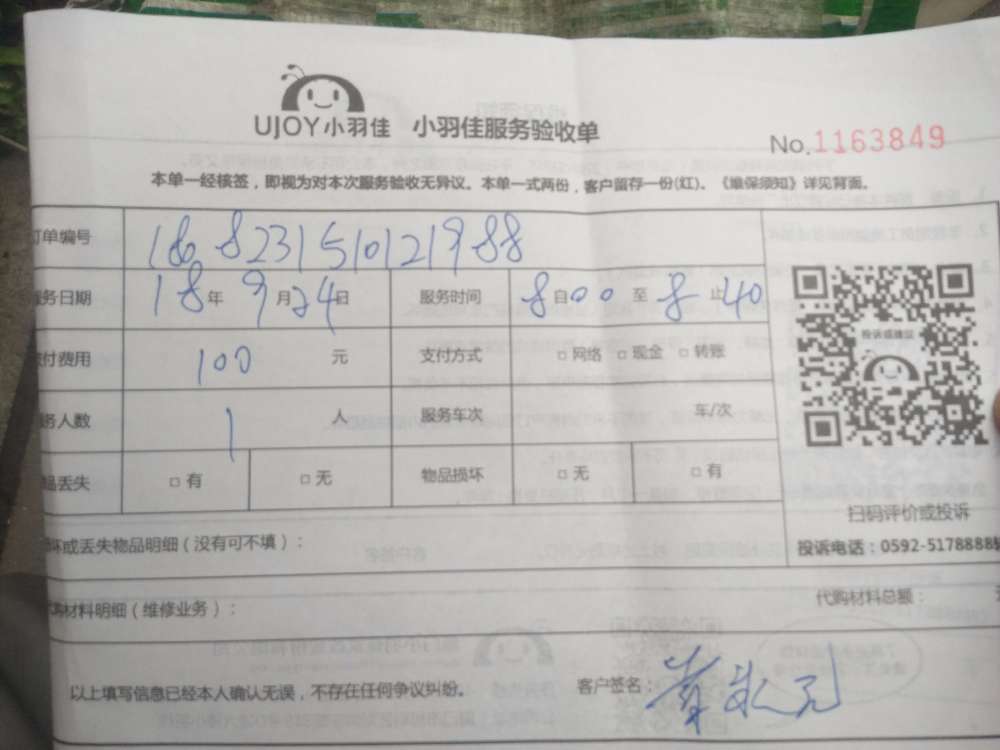 UJOY小羽佳 小羽佳服务验收单
No.1163849
本单一经核签，即视为对本次服务验收无异议。本单一式两份，客户留存一份(红)。《维保须知》详见背面。
订单编号 168231510121988
服务日期 18年9月24日 服务时间 8自00至8止40
付费用 100元 支付方式 □网络 □现金 □转账
务人数 1人 服务车次 车/次
品丢失 □有 □无 物品损坏 □无 □有
投诉或建议
扫码评价或投诉
坏或丢失物品明细（没有可不填）： 投诉电话：0592-5178888
购材料明细（维修业务）： 代购材料总额：
以上填写信息已经本人确认无误，不存在任何争议纠纷。 客户签名：